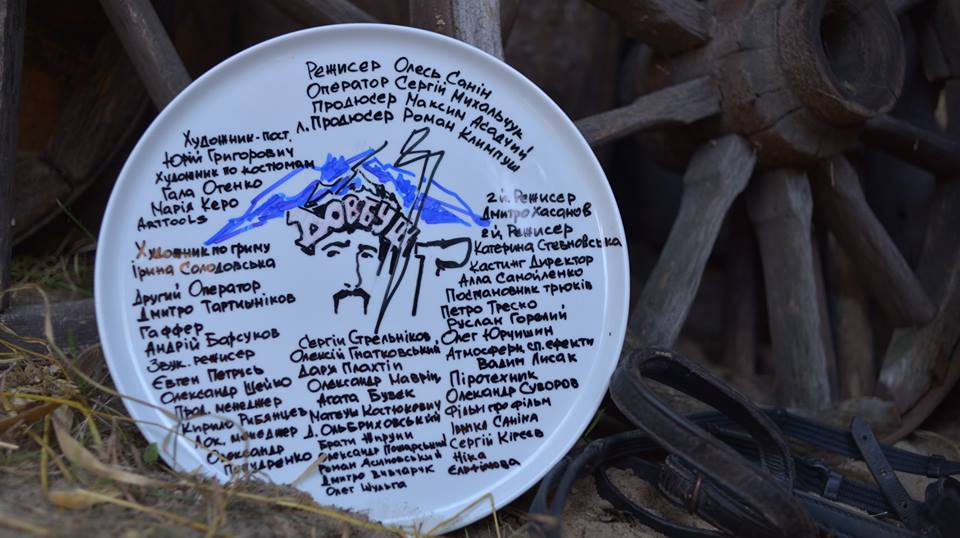 Режисер Олесь Санін
Оператор Сергій Михальчук
Продюсер Максим Асадчий
Л. Продюсер Роман Климпуш
Художник-пост.
Юрій Григорович
Художник по костюмам
Гала Отенко
Марія Керо
Arttools
Художник по гриму
Ірина Солодовська
Другий Оператор
Дмитро Тартышніков
Гаффер
Андрій Барсуков
Звук. режисер
Євген Петрусь
Олександр Шейко
Прод. менеджер
Кирило Рибянцев
Лок. менеджер
Олександр
Попудренко
Довбуш
Сергій Стрельніков,
Олексій Гнатковський
Дар'я Плахтій
Олександр Маврін
Агата Бузек
Матеуш Костюкевич
Д. Ольбриховський
Брати Жируни
Олександр Пожарський
Роман Ясиновський
Дмитро Вивчарук
Олег Шульга
2й. Режисер
Дмитро Хасанов
2й. Режисер
Катерина Стебновська
Кастинг Директор
Алла Самойленко
Постановник трюків
Петро Треско
Руслан Горовий
Олег Юрчишин
Атмосфера, сп. ефекти
Вадим Лисак
Піротехник
Олександр Суворов
Фільм про фільм
Іванка Саніна
Сергій Кірєєв
Ніка
Єлфімова